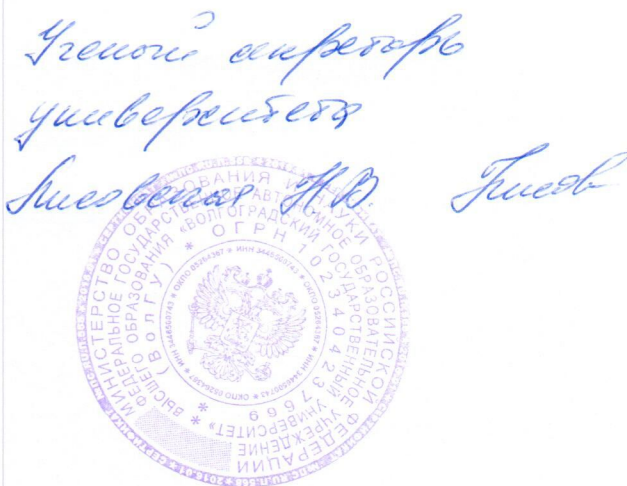 Ученый секретарь
университета
Лисовская Н.В.
МИНИСТЕРСТВО ОБРАЗОВАНИЯ И НАУКИ РОССИЙСКОЙ ФЕДЕРАЦИИ
ФЕДЕРАЛЬНОЕ ГОСУДАРСТВЕННОЕ АВТОНОМНОЕ ОБРАЗОВАТЕЛЬНОЕ УЧРЕЖДЕНИЕ
ВЫСШЕГО ОБРАЗОВАНИЯ «ВОЛГОГРАДСКИЙ ГОСУДАРСТВЕННЫЙ УНИВЕРСИТЕТ»
(ВолГУ) * ОГРН 1023404237669 *
* ОКПО 05264367 * ИНН 3446500743